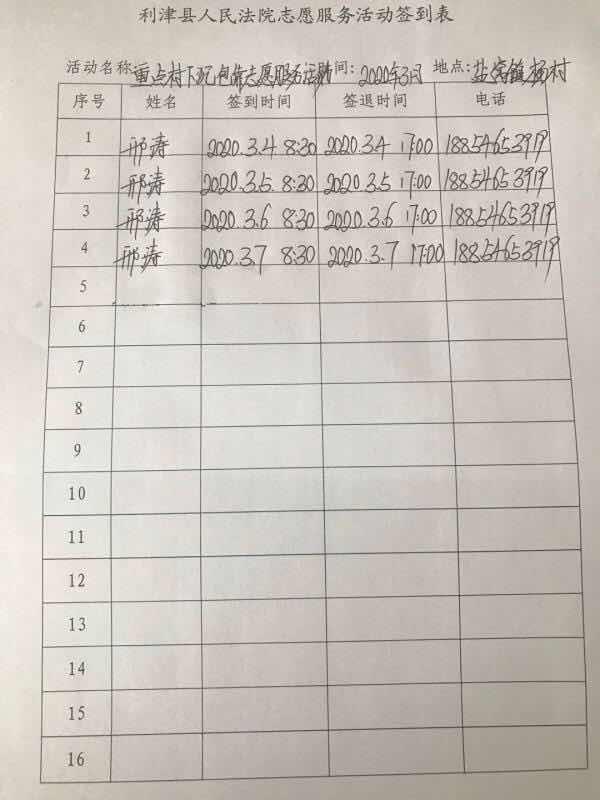 利津县人民法院志愿服务活动签到表
活动名称:重点村下沉包靠志愿服务活动 时间: 2020年3月 地点:盐窝镇杨村
序号 姓名 签到时间 签退时间 电话
1 邢涛 2020.3.4 8:30 2020.3.4 17:00 18854653919
2 邢涛 2020.3.5. 8:30 2020.3.5 17:00 18854653919
3 邢涛 2020.3.6 8:30 2020.3.6 17:00 18854653919
4 邢涛 2020.3.7 8:30 2020.3.7 17:00 18854653919
5
6
7
8
9
10
11
12
13
14
15
16